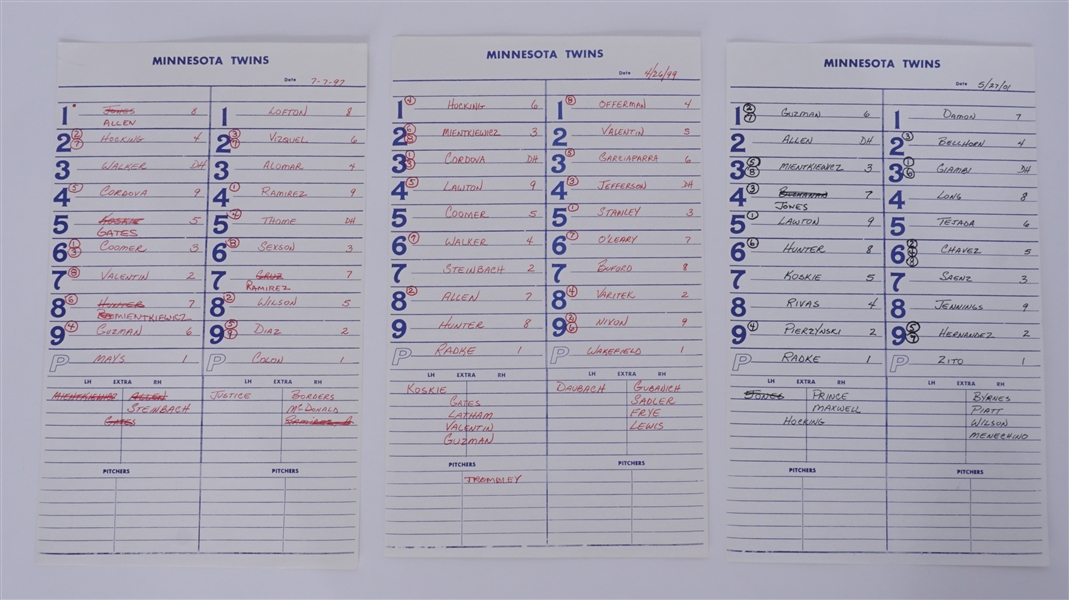 MINNESOTA TWINS
Date 7-7-97
1 Jones 8 1 LOFTON 8
ALLEN
2 2 7 HOCKING 4 2 3 9 VIZQUEL 6
3 WALKER DH 3 ALOMAR 4
4 5 CORDOVA 9 4 1 RAMIREZ 9
5 KOSKIE 5 5 4 THOME DH
GATES
6 1 3 COOMER 3 6 8 SEXSON 3
7 8 VALENTIN 2 7 7
RAMIREZ
8 6 HUNTER 7 8 2 WILSON 5
MIENTKIEWICZ
9 4 GUZMAN 6 9 5 DIAZ 2
P MAYS 1 P COLON 1
LH EXTRA RH LH EXTRA RH
MIENTKIEWICZ ALLEN JUSTICE BORDERS
STEINBACH McDONALD
GATES RAMIREZ, A
PITCHERS PITCHERS
MINNESOTA TWINS
Date 4/26/99
1 4 HOCKING 6 1 8 OFFERMAN 4
2 6 8 MIENTKIEWICZ 3 2 VALENTIN 5
3 1 3 CORDOVA DH 3 5 GARCIAPARRA 6
4 5 LAWTON 9 4 3 JEFFERSON DH
5 COOMER 5 5 1 STANLEY 3
6 7 WALKER 4 6 7 O'LEARY 7
7 STEINBACH 2 7 BUFORD 8
8 2 ALLEN 7 8 4 VARITEK 2
9 HUNTER 8 9 2 6 NIXON 9
P RADKE 1 P WAKEFIELD 1
LH EXTRA RH LH EXTRA RH
KOSKIE DAUBACH GUBANICH
GATES SADLER
LATHAM FRYE
VALENTIN LEWIS
GUZMAN
PITCHERS PITCHERS
TROMBLEY
MINNESOTA TWINS
Date 5/27/01
1 2 7 GUZMAN 6 1 DAMON 7
2 ALLEN DH 2 3 BELLHORN 4
3 5 8 MIENTKIEWICZ 3 3 1 6 GIAMBI DH
4 3 BUCHANAN 7 4 LONG 8
JONES
5 1 LAWTON 9 5 TEJADA 6
6 6 HUNTER 8 6 2 4 8 CHAVEZ 5
7 KOSKIE 5 7 SAENZ 3
8 RIVAS 4 8 JENNINGS 9
9 4 PIERZYNSKI 2 9 5 7 HERNANDEZ 2
P RADKE 1 P ZITO 1
LH EXTRA RH LH EXTRA RH
JONES PRINCE BYRNES
MAXWELL PIATT
HOCKING WILSON
MENECHINO
PITCHERS PITCHERS